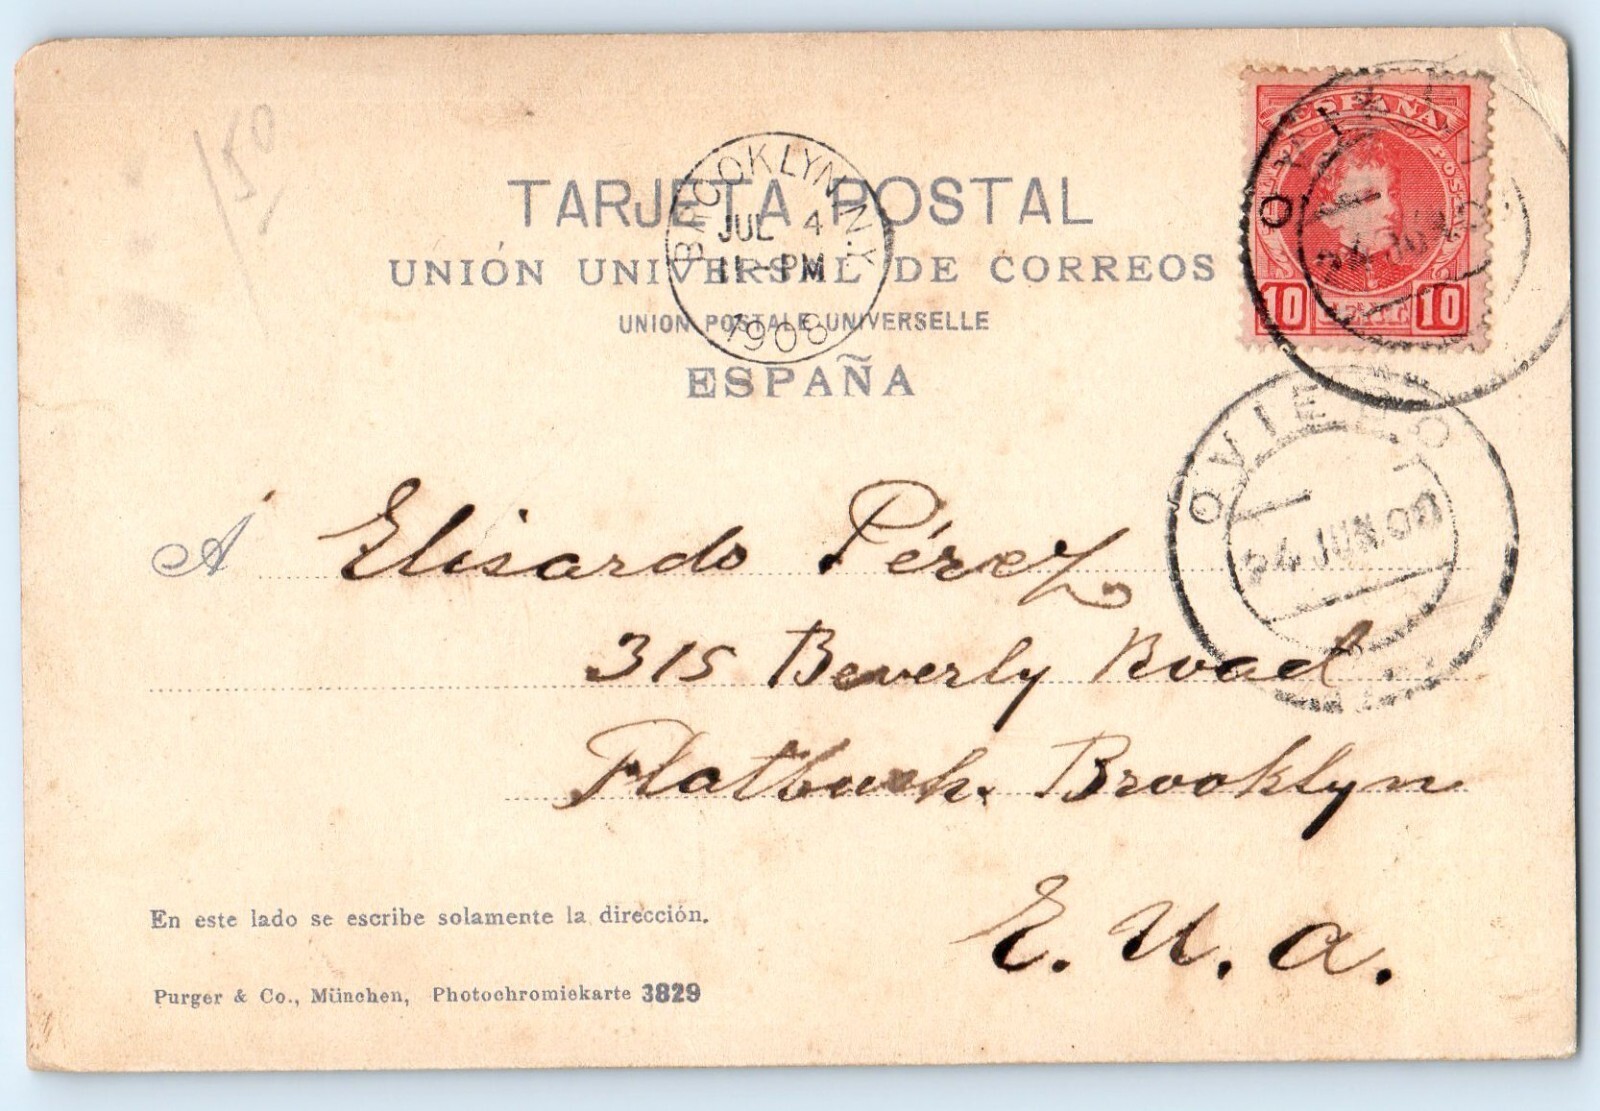 150
TARJETA POSTAL
UNIÓN UNIVERSAL DE CORREOS
UNION POSTALE UNIVERSELLE
ESPAÑA
BROOKLYN, N.Y.
JUL 4
11-PM
1908
ESPAÑA
10 10
OVIEDO
24 JUN.08
OVIEDO
24 JUN.08
Á Elisardo Pérez
315 Beverly Road
Flatbush. Brooklyn
E. U. A.
En este lado se escribe solamente la dirección.
Purger & Co., München, Photochromiekarte 3829